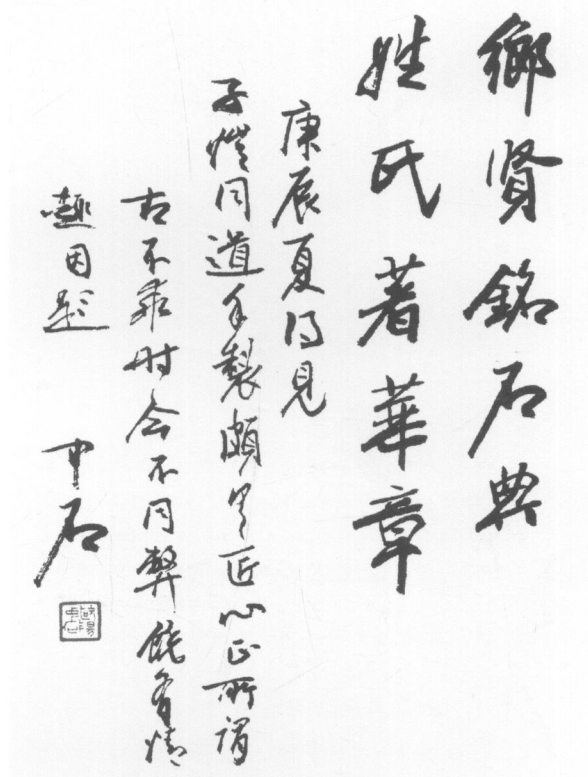 鄉賢銘石典
姓氏著華章
庚辰夏得見
子愷同道手製頗具匠心正所謂
古不乖时今不同弊能有情
趣因题
中石
歐陽中石